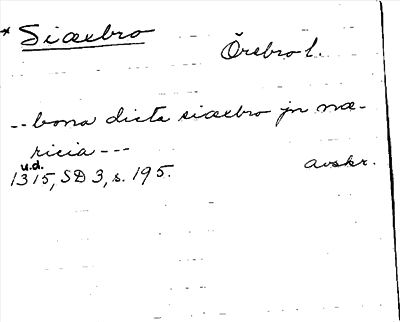 * Siæxbro
Örebro l.
-- bona dicta siæxbro jn næ-
ricia ---
u.d.
1315, SD 3, s. 195.
avskr.